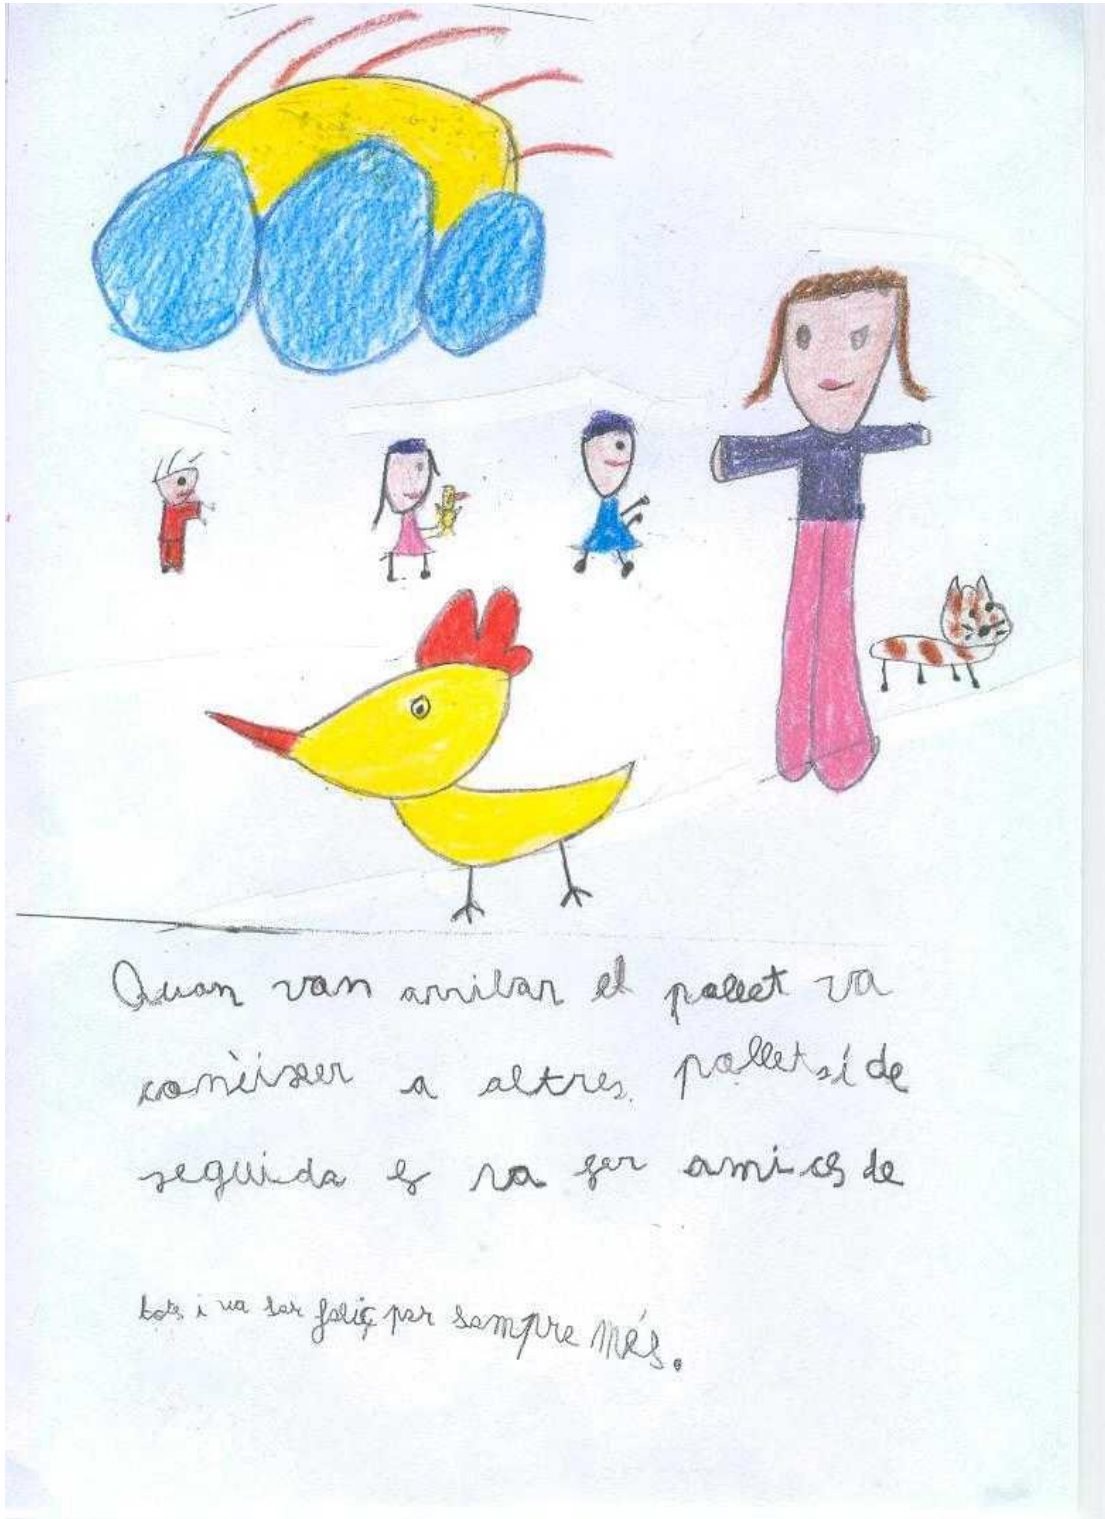 Quan van arribar el pollet va
conèixer a altres polletsi de
seguida es va fer amics de
tots i va ser feliç per sempre més.